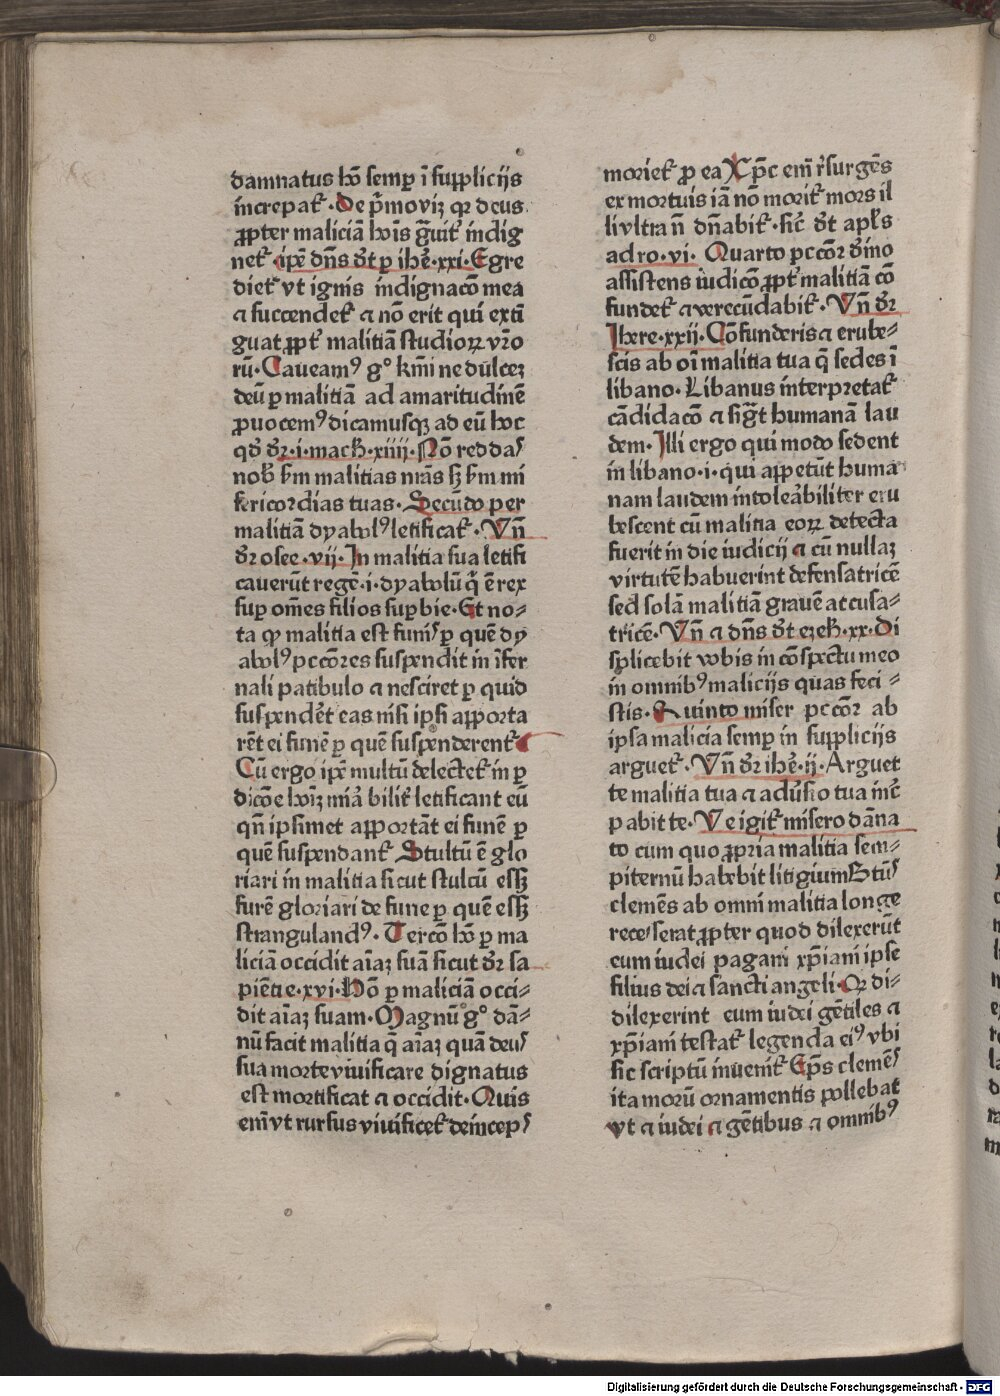 damnatus hō semꝑ ī supplicijs
increpat᷑ . De p̄mo viꝫ qꝛ deus
ꝓpter maliciā hoīs g̃uit᷑ indig
net᷑ . ip̄e dn̄s d̄t ꝑ ihe᷑ .xxi. Egre
diet᷑ vt ignis indignacō mea
⁊ succendet᷑ ⁊ nō erit qui extī
guat ꝓpt᷑ malitiā studioꝝ vr̄o
rū . Caueamꝰ gͦ kr̄mi ne dulceꝫ
deū ꝑ malitiā ad amaritudinē
ꝓuocemꝰ dicamusqꝫ ad eū hoc
qd̄ dr̄ .i. mach̄ .xiiii. Nō reddaˢ
nob̄ s̄m malitias nr̄as sꝫ s̄m mi
sericordias tuas . Secūdo per
malitiā dyabolꝰ letificat᷑ . Vn̄
dr̄ osee .vij. In malitia sua letifi
cauerūt regē .i. dyabolū q̄ ē rex
suꝑ om̄es filios suꝑbie . Et no⸗
ta ꝙ malitia est funiˢ ꝑ quē dy
abolꝰ pccōres suspendit in īfer
nali patibulo ⁊ nesciret ꝑ quid
suspendēt eas nisi ipsi apporta
rēt ei funē ꝑ quē suspenderent᷑
Cū ergo ip̄e multū delectet᷑ in ꝑ
dicōe hoīꝫ mīa bilit᷑ letificant eū
qn̄ ipsimet apportāt ei funē ꝑ
quē suspendant᷑ Stultū ē glo
riari in malitia sicut stulcū essꝫ
furē gloriari de fune ꝑ quē essꝫ
strangulandꝰ . Tercō hō ꝑ ma
liciā occidit aīaꝫ suā sicut dr̄ sa
piētie .xvi. Hō ꝑ maliciā occi⸗
dit aīaꝫ suam . Magnū gͦ dā⸗
nū facit malitia q̄ aīaꝫ quā deuˢ
sua morte viuificare dignatus
est mortificat ⁊ occidit . Quis
enī vt rursus viuificet᷑ deincepˢ
moriet᷑ ꝓ ea Xp̄c em̄ r̄surgēs
ex mortuis iā nō morit᷑ mors il
li vltra n̄ dn̄abit᷑ . sic̄ d̄t apl̄s
ad ro. vi. Quarto pccōr d̄ino
assistens iudicō ꝓpt᷑ malitiā cō
fundet᷑ ⁊ verecūdabit᷑ . Vn̄ dr̄
Ihere .xxij. Cōfunderis ⁊ erube⸗
scis ab oī malitia tua q̄ sedes ī
libano . Libanus interpretat᷑
cādidacō ⁊ sig̃t humanā lau
dem . Illi ergo qui modo sedent
in libano .i. qui appetūt huma
nam laudem intolēabiliter eru
bescent cū malitia eoꝝ detecta
fuerit in die iudicij ⁊ cū nullaꝫ
virtutē habuerint defensatricē
sed solā malitiā grauē atcusa⸗
tricē . Vn̄ ⁊ dn̄s d̄t ezeh̄ .xx. Di
splicebit vobis in cōspectu meo
in omnibꝰ malicijs quas feci⸗
stis . Quinto miser pccōr ab
ipsa malicia semꝑ in supplicijs
arguet᷑ . Vn̄ dr̄ ihe᷑ .ij. Arguet
te malitia tua ⁊ aduˢio tua inc̄
pabit te . Ve igit᷑ misero dāna
to cum quo ꝓpria malitia sem⸗
piternū habebit litigium Stūˢ
clemēs ab omni malitia longe
recesserat ꝓpter quod dilexerūt
eum iudei pagani xp̄iani ipse
filius dei ⁊ sancti angeli . Qꝛ di⸗
dilexerint eum iudei gētiles ⁊
xp̄iani testat᷑ legenda eiꝰ vbi
sic scriptū inuenit᷑ Ep̄s clemēˢ
ita morū ornamentis pollebat
vt ⁊ iudei ⁊ gētibus ⁊ omnibꝰ
Digitalisierung gefördert durch die Deutsche Forschungsgemeinschaft - DFG